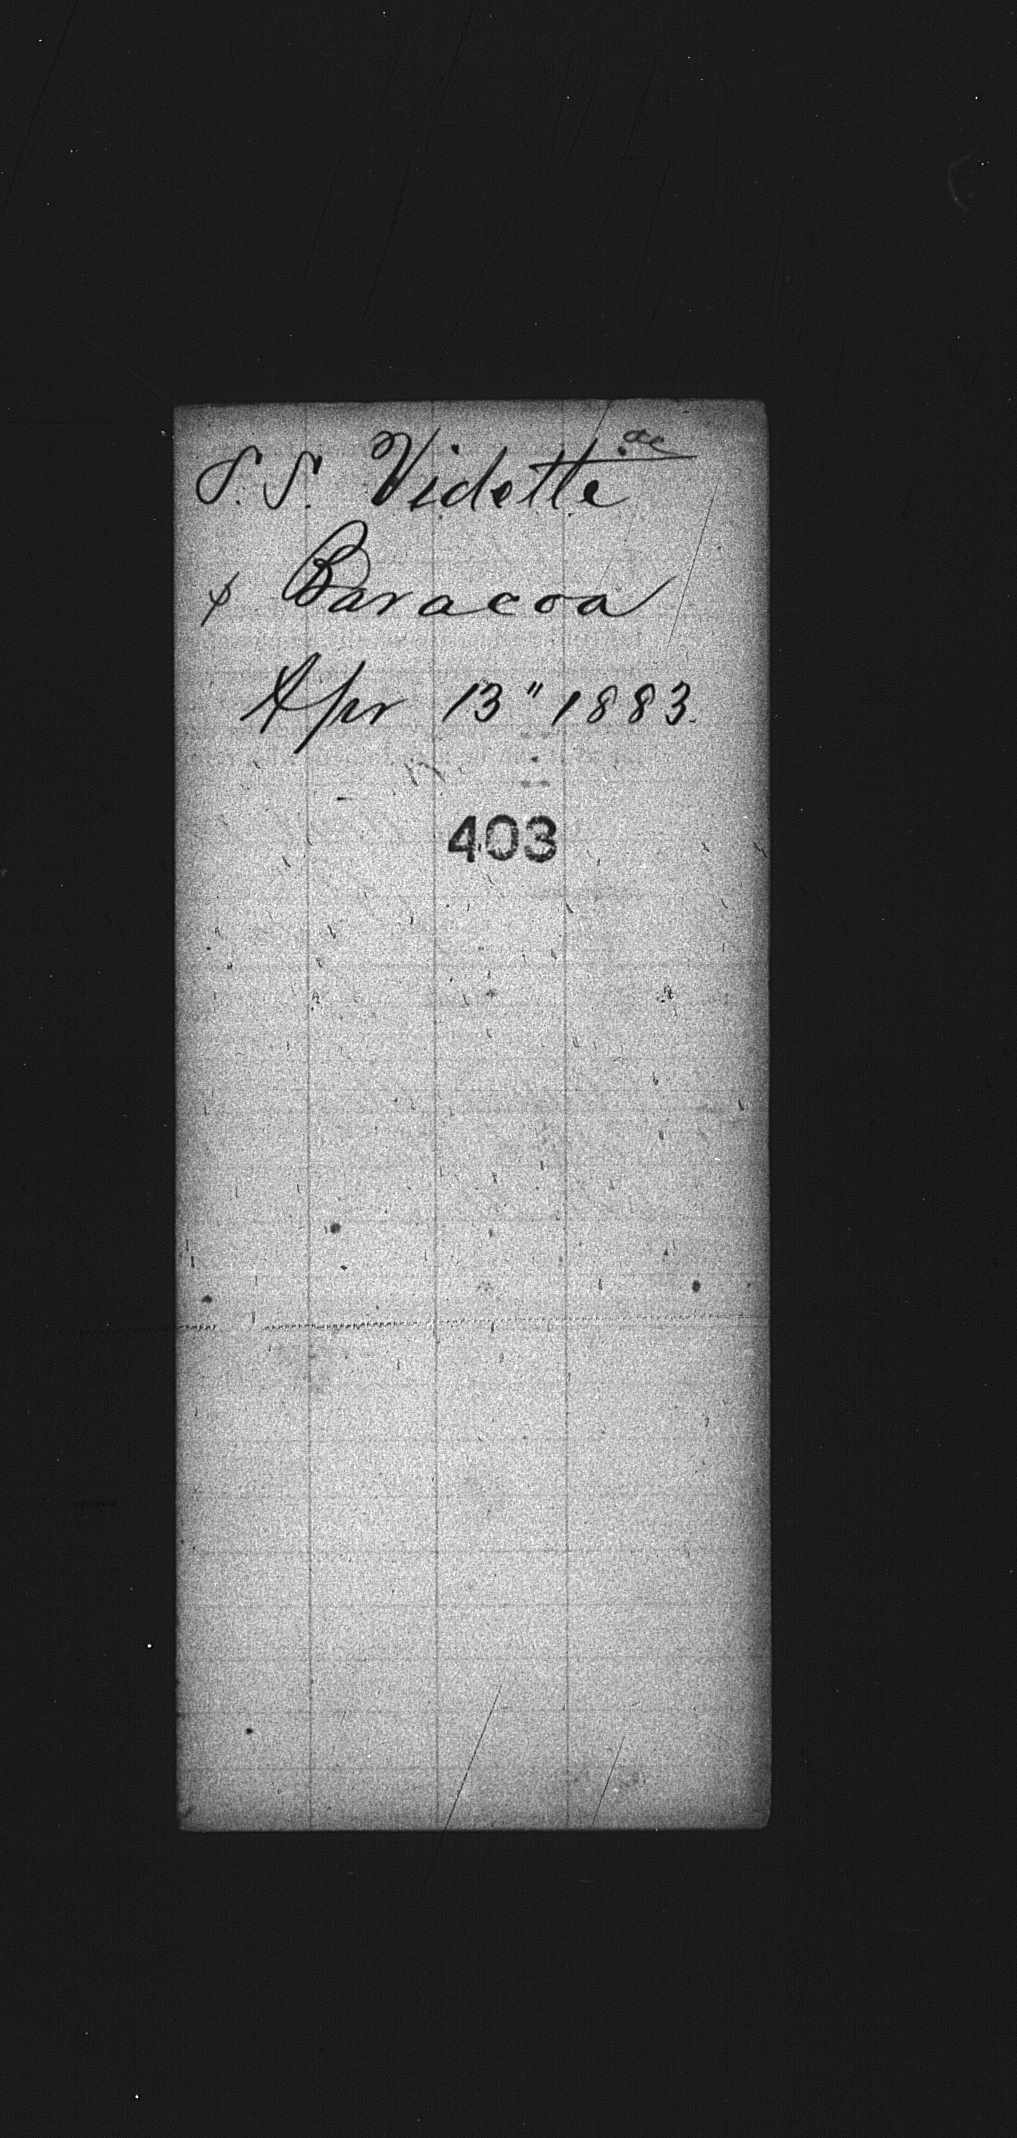 S.S. Vidette
Baracoa
Apr 13" 1883.
403